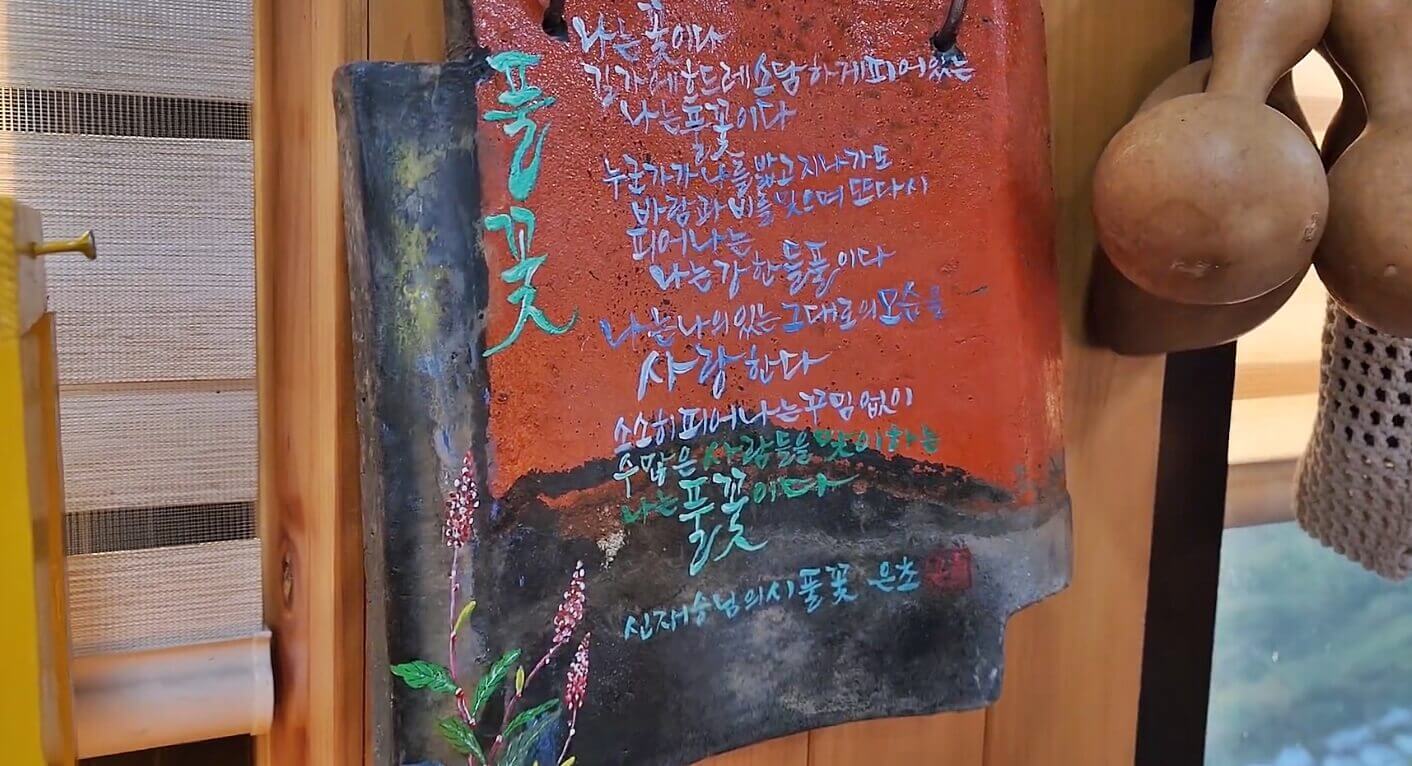 풀꽃
나는 꽃이다
길가에 흐드레 소담하게 피어있는
나는 풀꽃이다
누군가가 나를 밟고 지나가도
바람과 비를 맞으며 또다시
피어나는
나는 강한 들풀이다
나는 나의 있는 그대로의 모습을
사랑한다
소소히 피어나는 꾸밈없이
수많은 사람들을 맞이하는
나는 풀꽃이다
신재승님의 시 풀꽃 은초